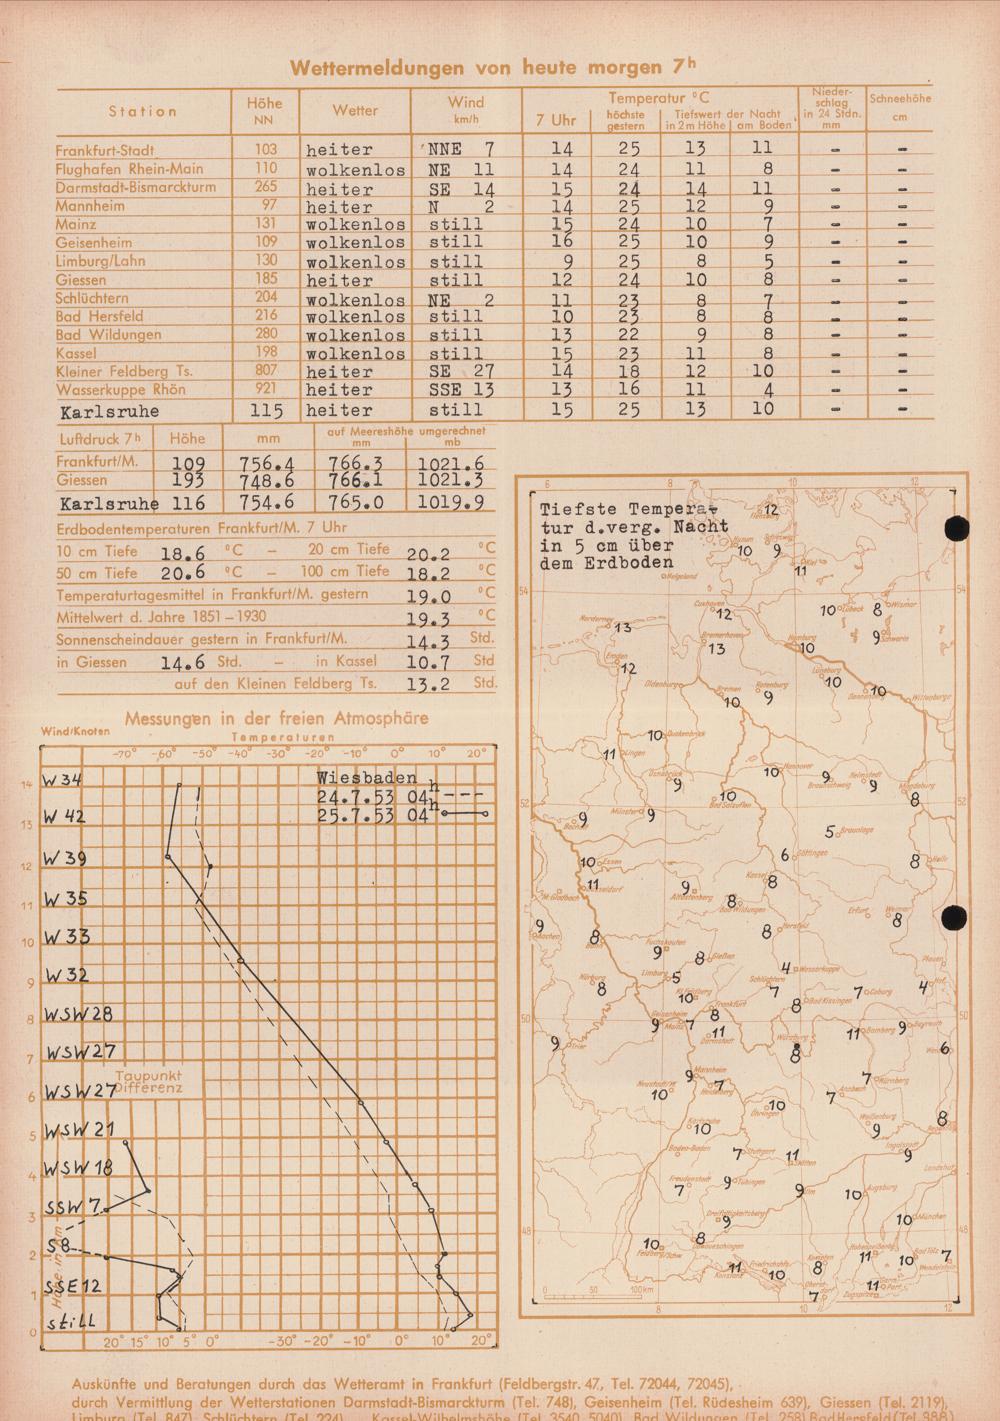 Wettermeldungen von heute morgen 7h
Station Höhe NN Wetter Wind km/h Temperatur °C Nieder-schlag in 24 Stdn. mm Schneehöhe cm
7 Uhr höchste gestern Tiefstwert der Nacht in 2 m Höhe am Boden
Frankfurt-Stadt 103 heiter NNE 7 14 25 13 11 - -
Flughafen Rhein-Main 110 wolkenlos NE 11 14 24 11 8 - -
Darmstadt-Bismarckturm 265 heiter SE 14 15 24 14 11 - -
Mannheim 97 heiter N 2 14 25 12 9 - -
Mainz 131 wolkenlos still 15 24 10 7 - -
Geisenheim 109 wolkenlos still 16 25 10 9 - -
Limburg/Lahn 130 wolkenlos still 9 25 8 5 - -
Giessen 185 heiter still 12 24 10 8 - -
Schlüchtern 204 wolkenlos NE 2 11 23 8 7 - -
Bad Hersfeld 216 wolkenlos still 10 23 8 8 - -
Bad Wildungen 280 wolkenlos still 13 22 9 8 - -
Kassel 198 wolkenlos still 15 23 11 8 - -
Kleiner Feldberg Ts. 807 heiter SE 27 14 18 12 10 - -
Wasserkuppe Rhön 921 heiter SSE 13 13 16 11 4 - -
Karlsruhe 115 heiter still 15 25 13 10 - -
Luftdruck 7h Höhe mm auf Meereshöhe umgerechnet mm mb
Frankfurt/M. 109 756.4 766.3 1021.6
Giessen 193 748.6 766.1 1021.3
Karlsruhe 116 754.6 765.0 1019.9
Erdbodentemperaturen Frankfurt/M. 7 Uhr
10 cm Tiefe 18.6 °C – 20 cm Tiefe 20.2 °C
50 cm Tiefe 20.6 °C – 100 cm Tiefe 18.2 °C
Temperaturtagesmittel in Frankfurt/M. gestern 19.0 °C
Mittelwert d. Jahre 1851–1930 19.3 °C
Sonnenscheindauer gestern in Frankfurt/M. 14.3 Std.
in Giessen 14.6 Std. – in Kassel 10.7 Std
auf den Kleinen Feldberg Ts. 13.2 Std.
Messungen in der freien Atmosphäre
Wind/Knoten Temperaturen
-70° -60° -50° -40° -30° -20° -10° 0° 10° 20°
Wiesbaden
24.7.53 04h
25.7.53 04h
14 W 34
13 W 42
12 W 39
11 W 35
10 W 33
9 W 32
8 WSW 28
7 WSW 27
Taupunkt
Differenz
6 WSW 27
5 WSW 21
4 WSW 18
3 SSW 7
2 S 8
1 SSE 12
0 still
Höhe in km
20° 15° 10° 5° 0° -30° -20° -10° 0° 10° 20°
Tiefste Tempera-
tur d.verg. Nacht
in 5 cm über
dem Erdboden
6 8 10 12
54 54
52 52
50 50
48 48
12 Flensburg
Husum 10 9 Schleswig
Kiel 11
Helgoland
Cuxhaven 12
10 Lübeck 8 Wismar
9 Schwerin
Norderney 13
Bremerhaven 13
Hamburg 10
Emden 12
Oldenburg
Bremen 10
Rotenburg 9
Lüneburg 10
Dannenberg 10
Wittenberge
10 Quakenbrück
11 Lingen
Osnabrück 9
10 Hannover
9 Braunschweig
Helmstedt 9
Magdeburg 8
10 Bad Salzuflen
Münster 9
Bocholt 9
5 Braunlage
6 Göttingen
8 Halle
10 Essen
11 Düsseldorf
M. Gladbach
9 Altastenberg
Kassel 8
8 Bad Wildungen
Erfurt
Weimar 8
9 Aachen
8 Bonn
Fuchskauten 9
8 Gießen
8 Hersfeld
4 Wasserkuppe
Plauen
Nürburg 8
Limburg 5
Kl. Feldberg 10
Schlüchtern 7
8 Bad Kissingen
7 Coburg
4 Hof
Frankfurt 8
Geisenheim 9
Mainz 7
11 Darmstadt
Würzburg 8
11 Bamberg
9 Bayreuth
9 Trier
6
9 Mannheim
Neustadt/W. 10
7 Heidelberg
7 Nürnberg
Ansbach 7
10 Öhringen
Weißenburg 9
8
Karlsruhe 10
Baden-Baden
7 Stuttgart
11
Ingolstadt 9
Landshut
Freudenstadt 7
9 Tübingen
9 Ulm
10 Augsburg
10 München
9
10 Feldberg/Schw.
8 Donaueschingen
11 Konstanz
Friedrichshfn. 10
Kempten 8
Hohenpeißenberg 11
10 Bad Tölz
7 Wendelstein
Oberstdorf 7
11 Garm. Part.
Zugspitze
0 50 100 km
8 10 12
Auskünfte und Beratungen durch das Wetteramt in Frankfurt (Feldbergstr. 47, Tel. 72044, 72045),
durch Vermittlung der Wetterstationen Darmstadt-Bismarckturm (Tel. 748), Geisenheim (Tel. Rüdesheim 639), Giessen (Tel. 2119),
Limburg (Tel. 847), Schlüchtern (Tel. 224), Kassel-Wilhelmshöhe (Tel. 3540, 5040), Bad Wildungen (Tel. 258) Bad Hersfeld (Tel. 388)